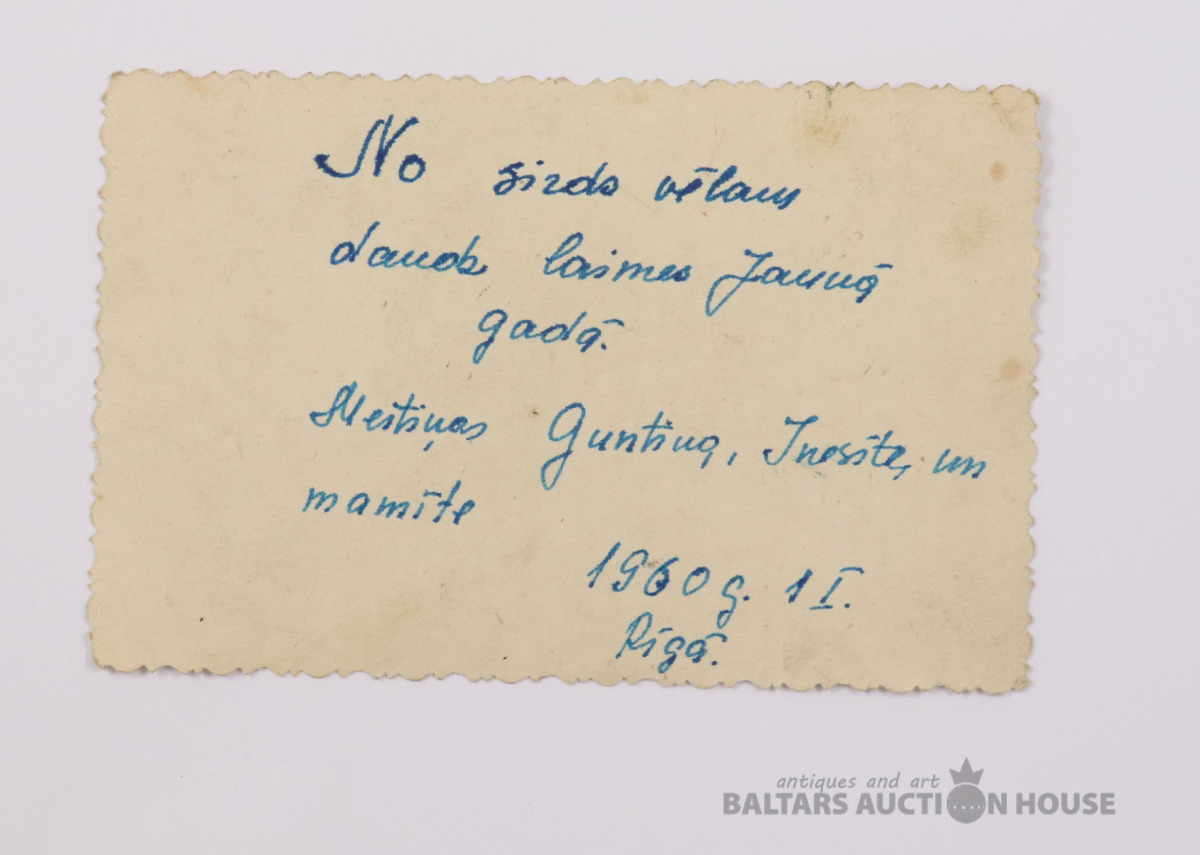 No sirds vēlam
daudz laimes Jaunā
gadā.
Meitiņas Guntiņa, Inesīte, un
mamīte
1960 g. 1 I.
Rīgā.
antiques and art
BALTARS AUCTION HOUSE